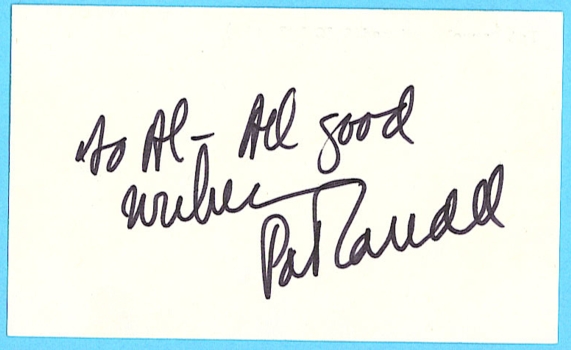 to Al - All good
wishes
Pat Randall